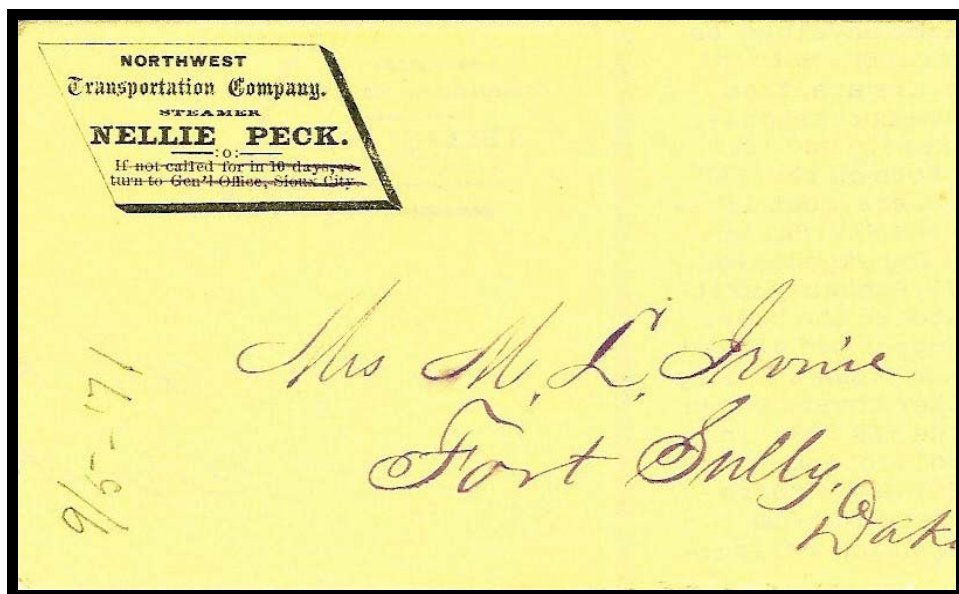 NORTHWEST
Transportation Company.
STEAMER
NELLIE PECK.
—:o:—
If not called for in 10 days, re-
turn to Gen'l Office, Sioux City.
Mrs M. L. Irvine
Fort Sully,
Dak
9/5-'71